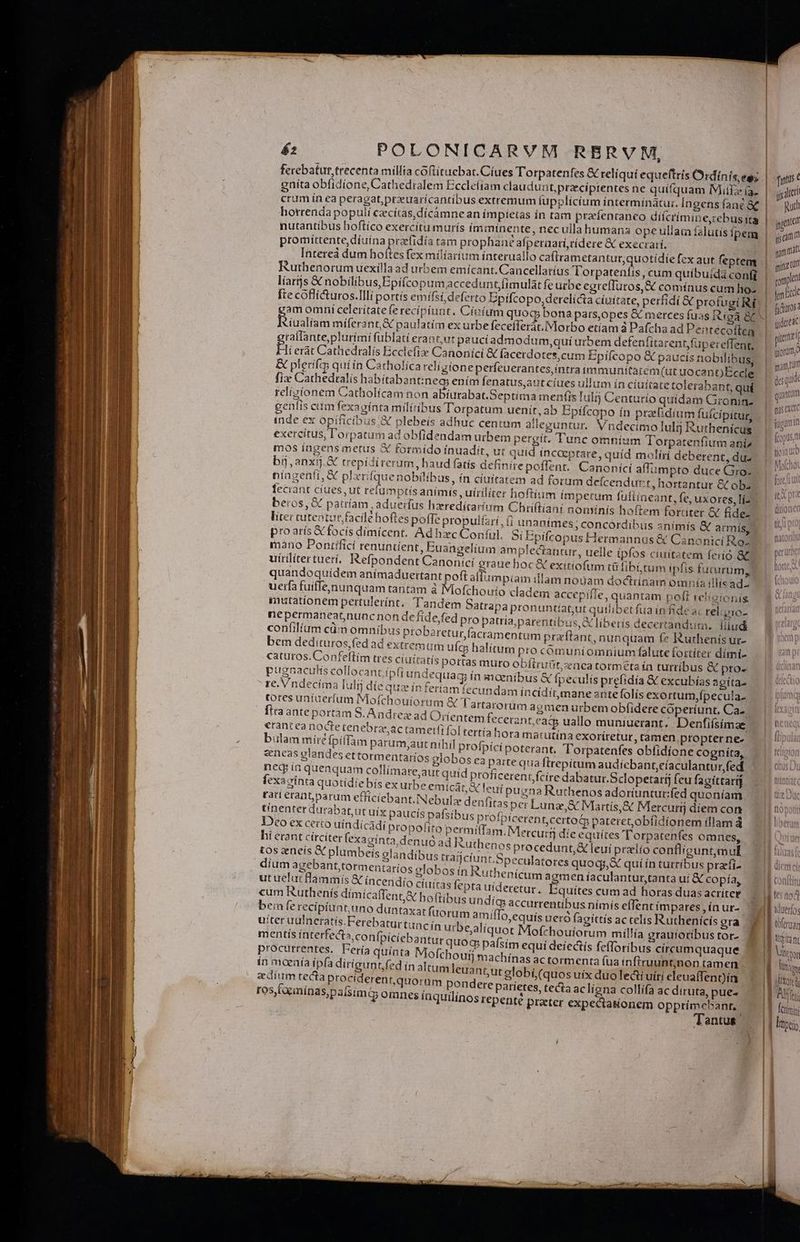 62 POLONICARVM RERVM,
ferebatur, trecenta millia cōstituebat. Ciues Torpatenses & reliqui equestris Ordinis, co
gnita obsidione, Cathedralem Ecclesiam claudunt, præcipientes ne quisquam Missæ sa-
crum in ea peragat, præuaricantibus extremum supplicium interminātur. Ingens sanē &
horrenda populi cæcitas, dicámne an impietas in tam præsentaneo discrimine, rebus ita
nutantibus hostico exercitu muris imminente, nec ulla humana ope ullam salutis spem
promittente, diuina præsidia tam prophanē aspernari, ridere & execrari.
Interea dum hostes sex miliarium interuallo castrametantur, quotidie sex aut septem
Ruthenorum uexilla ad urbem emicant. Cancellarius Torpatensis, cum quibusdā consi
liarijs & nobilibus, Episcopum accedunt, simulāt se urbe egressuros, & cominus cum ho-
ste cōflicturos. Illi portis emissi, deserto Episcopo, derelicta ciuitate, perfidi & profugi Ri
gam omni celeritate se recipiunt. Ciuium quoq; bona pars, opes & merces suas Rigā &
Riualiam miserant, & paulatim ex urbe secesserāt. Morbo etiam à Pascha ad Pentecosten
grassante, plurimi sublati erant, ut pauci admodum, qui urbem defensitarent, superessent.
Hi erāt Cathedralis Ecclesiæ Canonici & sacerdotes, cum Episcopo & paucis nobilibus,
& plerisq; qui in Catholica religione perseuerantes, intra immunitatem (ut uocant) Eccle
siæ Cathedralis habitabant: neq; enim senatus, aut ciues ullum in ciuitate tolerabant, qui
religionem Catholicam non abiurabat. Septima mensis Iulij Centurio quidam Gronin-
gensis cum sexaginta militibus Torpatum uenit, ab Episcopo in præsidium suscipitur,
inde ex opificibus & plebeis adhuc centum alleguntur. Vndecimo Iulij Ruthenicus
exercitus, Torpatum ad obsidendam urbem pergit. Tunc omnium Torpatensium ani-
mos ingens metus & formido inuadit, ut quid incœptare, quid moliri deberent, du-
bij, anxij & trepidi rerum, haud satis definire possent. Canonici assumpto duce Gro-
ningensi, & plærisque nobilibus, in ciuitatem ad forum descendunt, hortantur & ob-
secrant ciues, ut resumptis animis, uiriliter hostium impetum sustineant, se, uxores, li-
beros, & patriam, aduersus hæreditarium Christiani nominis hostem fortiter & fide-
liter tutentur, facile hostes posse propulsari, si unanimes, concordibus animis & armis,
pro aris & focis dimicent. Ad hæc Consul. Si Episcopus Hermannus & Canonici Ro-
mano Pontifici renuntient, Euangelium amplectantur, uelle ipsos ciuitatem seriò &
uiriliter tueri. Respondent Canonici graue hoc & exitiosum tū sibi, tum ipsis futurum,
quandoquidem animaduertant post assumptam illam nouam doctrinam omnia illis ad-
uersa fuisse, nunquam tantam à Moschouito cladem accepisse, quantam post religionis
mutationem pertulerint. Tandem Satrapa pronuntiat, ut quilibet sua in fide ac religio-
ne permaneat, nunc non de fide, sed pro patria, parentibus, & liberis decertandum. Illud
consilium cùm omnibus probaretur, sacramentum præstant, nunquam se Ruthenis ur-
bem dedituros, sed ad extremum usq; halitum pro cōmuni omnium salute fortiter dimi-
caturos. Confestim tres ciuitatis portas muro obstruūt, ænea tormēta in turribus & pro-
pugnaculis collocant, ipsi undequaq; in mœnibus & speculis presidia & excubias agita-
re. Vndecima Iulij die quæ in feriam secundam incidit, mane ante solis exortum, specula-
tores uniuersum Moschouiorum & Tartarorum agmen urbem obsidere cōperiunt. Ca-
stra ante portam S. Andreæ ad Orientem fecerant, eaq; uallo muniuerant. Densissimæ
erant ea nocte tenebræ, ac tametsi sol tertia hora matutina exoriretur, tamen propter ne-
bulam mirè spissam parum, aut nihil prospici poterant. Torpatenses obsidione cognita,
æneas glandes et tormentarios globos ea parte qua strepitum audiebant, eiaculantur, sed
neq; in quenquam collimare, aut quid proficerent, scire dabatur. Sclopetarij seu sagittarij
sexaginta quotidie bis ex urbe emicāt, & leui pugna Ruthenos adoriuntur: sed quoniam
rari erant, parum efficiebant. Nebulæ densitas per Lunæ, & Martis, & Mercurij diem con
tinenter durabat, ut uix paucis passibus prospicerent, certoq; pateret, obsidionem illam à
Deo ex certo uindicādi proposito permissam. Mercurij die equites Torpatenses omnes,
hi erant circiter sexaginta, denuò ad Ruthenos procedunt, & leui prælio confligunt, mul
tos æneis & plumbeis glandibus traijciunt. Speculatores quoq;, & qui in turribus præsi-
dium agebant, tormentarios globos in Ruthenicum agmen iaculantur, tanta ui & copia,
ut uelut flammis & incendio ciuitas septa uideretur. Equites cum ad horas duas acriter
cum Ruthenis dimicassent, & hostibus undiq; accurrentibus nimis essent impares, in ur-
bem se recipiunt, uno duntaxat suorum amisso, equis uerò sagittis ac telis Ruthenicis gra
uiter uulneratis. Ferebatur tunc in urbe, aliquot Moschouiorum millia grauioribus tor-
mentis interfecta, conspiciebantur quoq; passim equi deiectis sessoribus circumquaque
procurrentes. Feria quinta Moschouij machinas ac tormenta sua instruunt, non tamen
in mœnia ipsa dirigunt, sed in altum leuant, ut globi, (quos uix duo lecti uiri eleuassent) in
ædium tecta prociderent, quorum pondere parietes, tecta ac ligna collisa ac diruta, pue-
ros, fœminas, passimq; omnes inquilinos repentè præter expectationem opprimebant.
Tantus